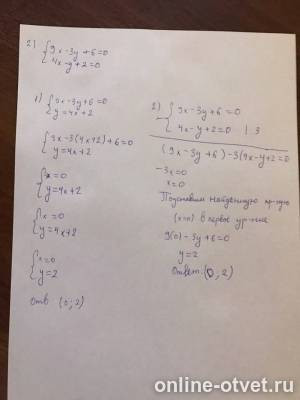 2) { 9x - 3y + 6 = 0
4x - y + 2 = 0
1) { 9x - 3y + 6 = 0
y = 4x + 2
{ 9x - 3(4x+2) + 6 = 0
y = 4x + 2
{ x = 0
y = 4x + 2
{ x = 0
y = 4x + 2
{ x = 0
y = 2
Отв (0; 2)
2) { 9x - 3y + 6 = 0
4x - y + 2 = 0 | 3
(9x - 3y + 6) - 3(4x - y + 2 = 0
-3x = 0
x = 0
Подставим найденную
(x=0) в первое ур-ние
9(0) - 3y + 6 = 0
y = 2
Ответ: (0; 2)
online-otvet.ru